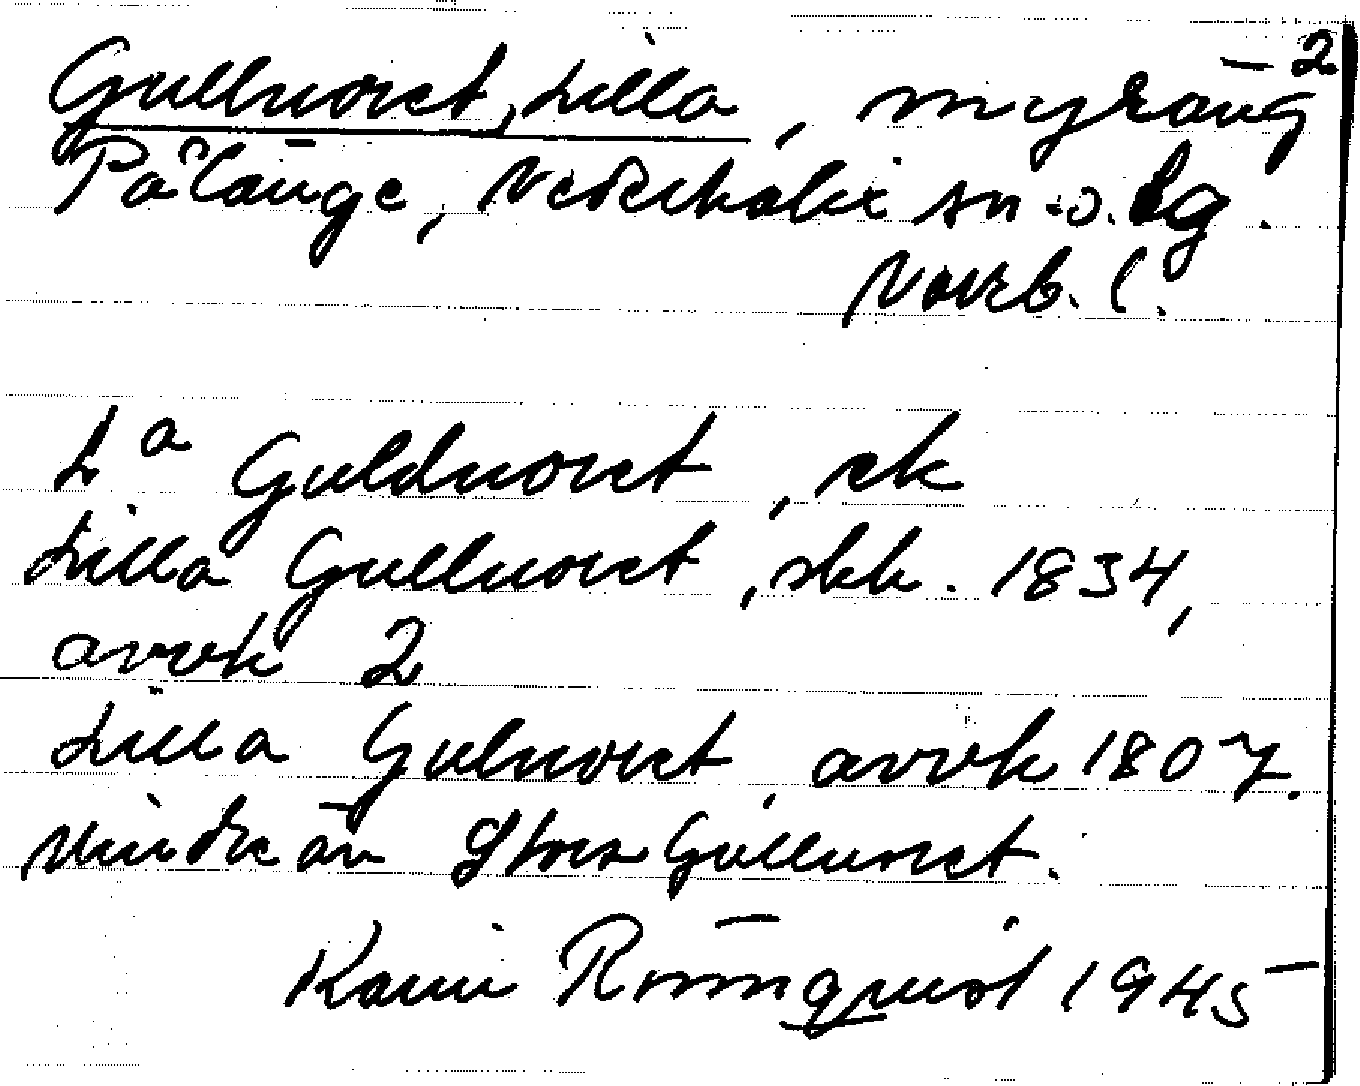 Gullnoret, Lilla, myräng – 2
Pålänge, Nederkalix sn o. lg.
Norrb. l.
Lª Guldnoret, ek
Lilla Gullnoret, skh. 1834,
avvk 2
Lilla Gulnoret, avvk 1807.
Mindre än Stora Gullnoret.
Karin Rönnquist 1945